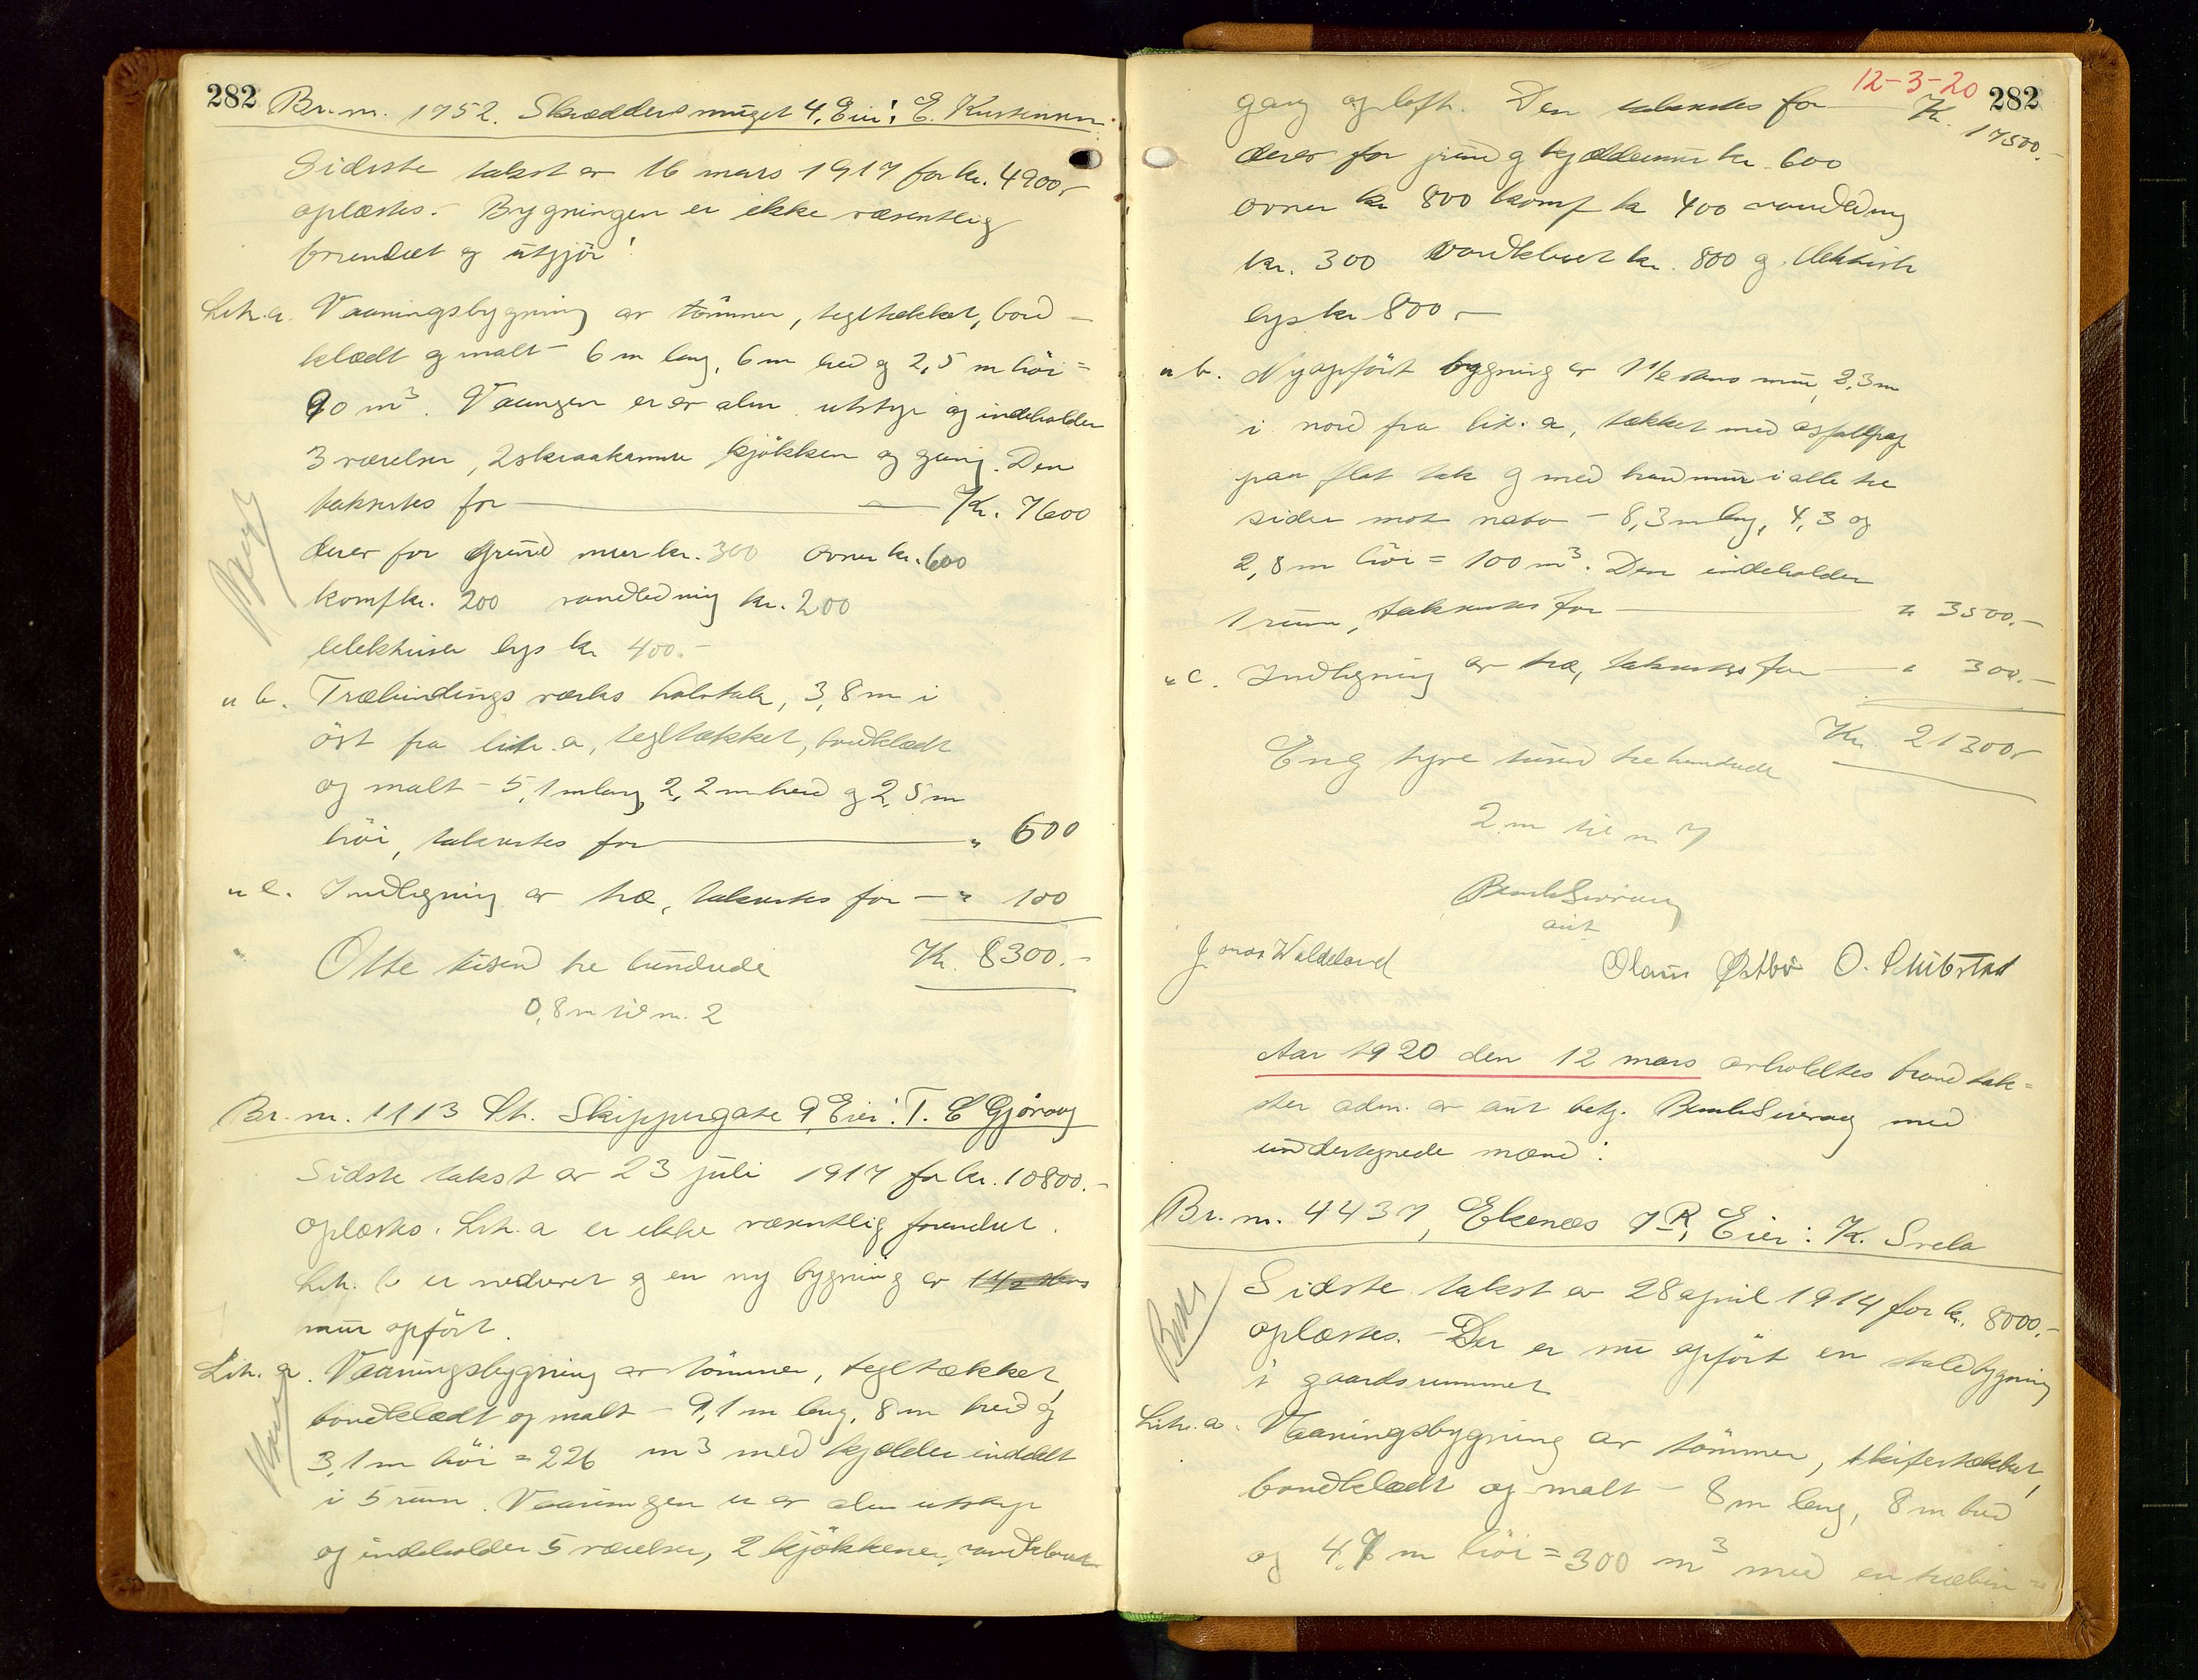 282
Br.nr. 1752. Skræddersmuget 4, Eier: E. Kristensen.
Sidste takst av 16 mars 1917 for kr. 4900,-
oplæstes.- Bygningen er ikke væsentlig
forandret og utgjør:
Litr. a. Vaaningsbygning av tömmer, tegltækket, bord-
klædt og malt - 6 m lang, 6 m bred og 2,5 m höi =
90 m³. Vaaningen er av alm. utstyr og indeholder
3 værelser, 2 skraakammer kjökken og gang. Den
takseres for — Kr. 7600
derav for Grundmur kr. 300 ovner kr. 600
komf kr. 200 vandledning kr. 200
elektrisk lys kr 400.-
" b. Træbindingsværks halvtak, 3,8 m i
öst fra litr. a, tegltækket, bordklædt
og malt - 5,1 m lang 2,2 m bred og 2,5 m
höi, takseres for — " 600
" c. Indhegning av træ, takseres for — " 100
Otte tusend tre hundrede Kr. 8300.-
0,8 m til nr. 2
Br. nr. 1113 St. Skippergate 9, Eier: T. E Gjörvag
Sidste takst av 23 juli 1917 for kr. 10800.-
oplæstes. Litr. a er ikke væsentlig forandret.
Litr. b er nedrevet og en ny bygning av 1 1/2 stens
mur opfört.
Litr. a. Vaaningsbygning av tömmer, tegltækket,
bordklædt og malt - 9,1 m lang, 8 m bred og
3,1 m höi = 226 m3 med kjelder inddelt
i 5 rum. Vaaningen er av alm utstyr
og indeholder 5 værelser, 2 kjökkener, vandklosett
12-3-20 282
gang og loft. Den takseres for — Kr. 17500.-
derav for grund og kjeldermur kr. 600
ovner kr 800 komf kr 400 vandledning
kr. 300 vandklosett kr. 800 og elektrisk
lys kr 800,-
" b. Nyopfört bygning av 1 1/2 stens mur, 2,3 m
i nord fra litr. a, tækket med asfaltpap
paa flat tak og med brandmur i alle tre
sider mot nabo - 8,3 m lang, 4,3 og
2,8 m höi = 100 m³. Den indeholder
1 rum, takseres for — " 3500.-
" c. Indhegning av træ, takseres for — " 300.-
Kr 21300,-
En og tyve tusend tre hundrede
2 m til nr. 7
aut
Jonas Waldeland Olaus Østbö O.
Aar 1920 den 12 mars avholdtes brandtak=
ster adm. av aut betj. med
undertegnede mænd:
Br. nr. 4437, Ekenæs 7 R, Eier: K. Svela
Sidste takst av 28 april 1914 for kr. 8000.-
oplæstes. - Der er nu opfört en staldbygning
i gaardsrummet
Litr. a. Vaaningsbygning av tömmer, skifertækket,
bordklædt og malt - 8 m lang, 8 m bred
og 4,7 m höi = 300 m³ med en træbin=